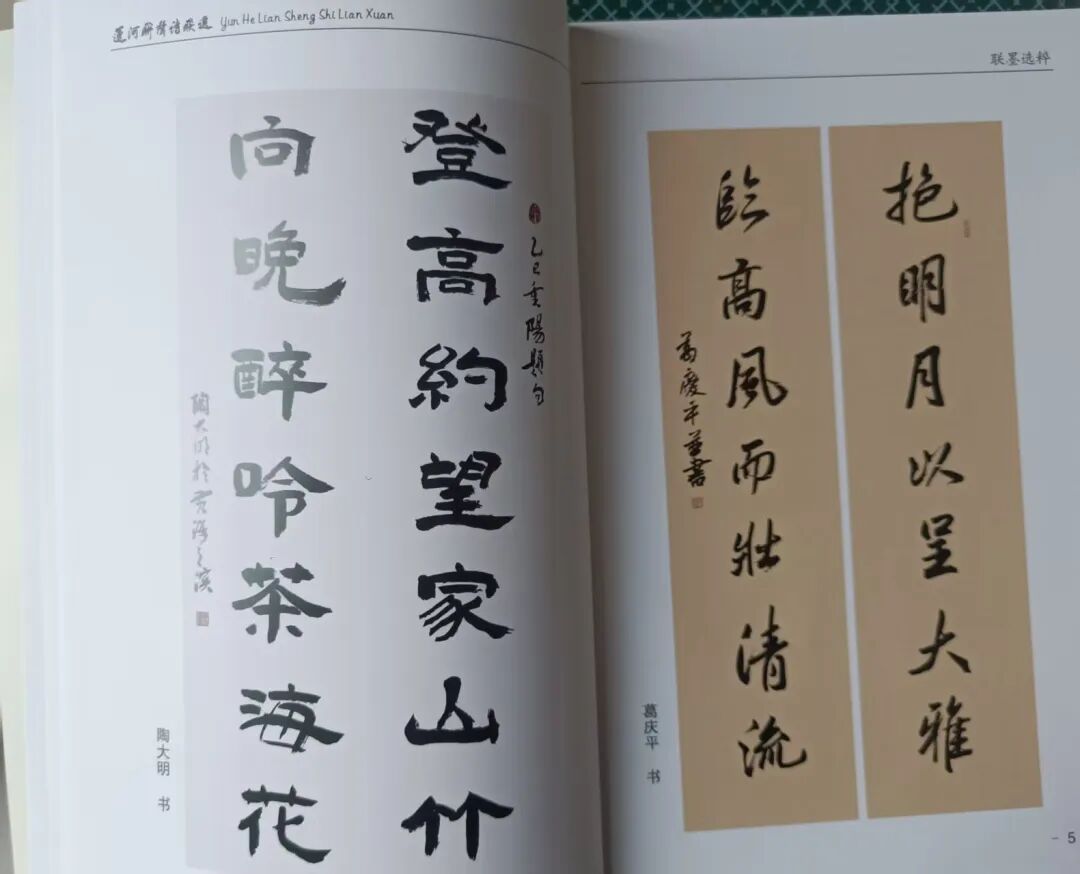 運河聯聲詩聯選 Yun He Lian Sheng Shi Lian Xuan
乙巳重陽題句
登高約望家山竹
向晚醉吟茶海花
陶大明於黄海之濱
陶大明 书
联墨选粹
抱明月以呈大雅
臨高風而壯清流
葛慶平並書
葛庆平 书
- 5